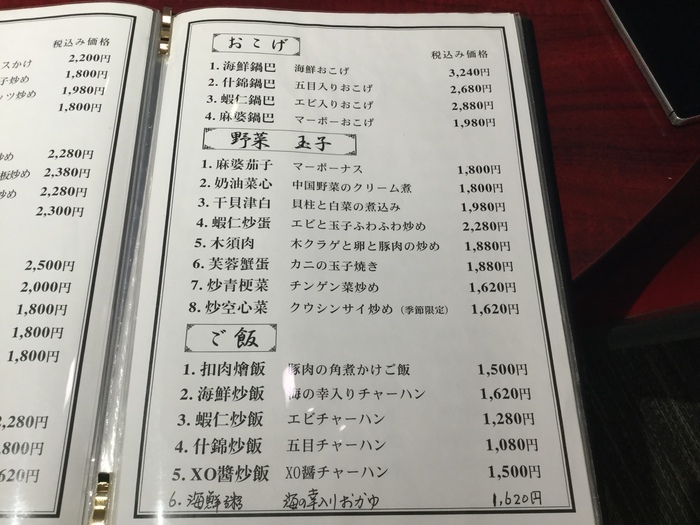 税込み価格
スかけ 2,200円
子炒め 1,800円
ッツ炒め 1,980円
1,800円
炒め 2,280円
板炒め 2,380円
炒め 2,280円
2,300円
2,500円
2,000円
1,800円
1,800円
1,800円
2,280円
,800円
,620円
おこげ
税込み価格
1. 海鮮鍋巴 海鮮おこげ 3,240円
2. 什錦鍋巴 五目入りおこげ 2,680円
3. 蝦仁鍋巴 エビ入りおこげ 2,880円
4. 麻婆鍋巴 マーボーおこげ 1,980円
野菜 玉子
1. 麻婆茄子 マーボーナス 1,800円
2. 奶油菜心 中国野菜のクリーム煮 1,800円
3. 干貝津白 貝柱と白菜の煮込み 1,980円
4. 蝦仁炒蛋 エビと玉子ふわふわ炒め 2,280円
5. 木須肉 木クラゲと卵と豚肉の炒め 1,880円
6. 芙蓉蟹蛋 カニの玉子焼き 1,880円
7. 炒青梗菜 チンゲン菜炒め 1,620円
8. 炒空心菜 クウシンサイ炒め (季節限定) 1,620円
ご飯
1. 扣肉燴飯 豚肉の角煮かけご飯 1,500円
2. 海鮮炒飯 海の幸入りチャーハン 1,620円
3. 蝦仁炒飯 エビチャーハン 1,280円
4. 什錦炒飯 五目チャーハン 1,080円
5. XO醬炒飯 XO醤チャーハン 1,500円
6. 海鮮粥 海の幸入りおかゆ 1,620円